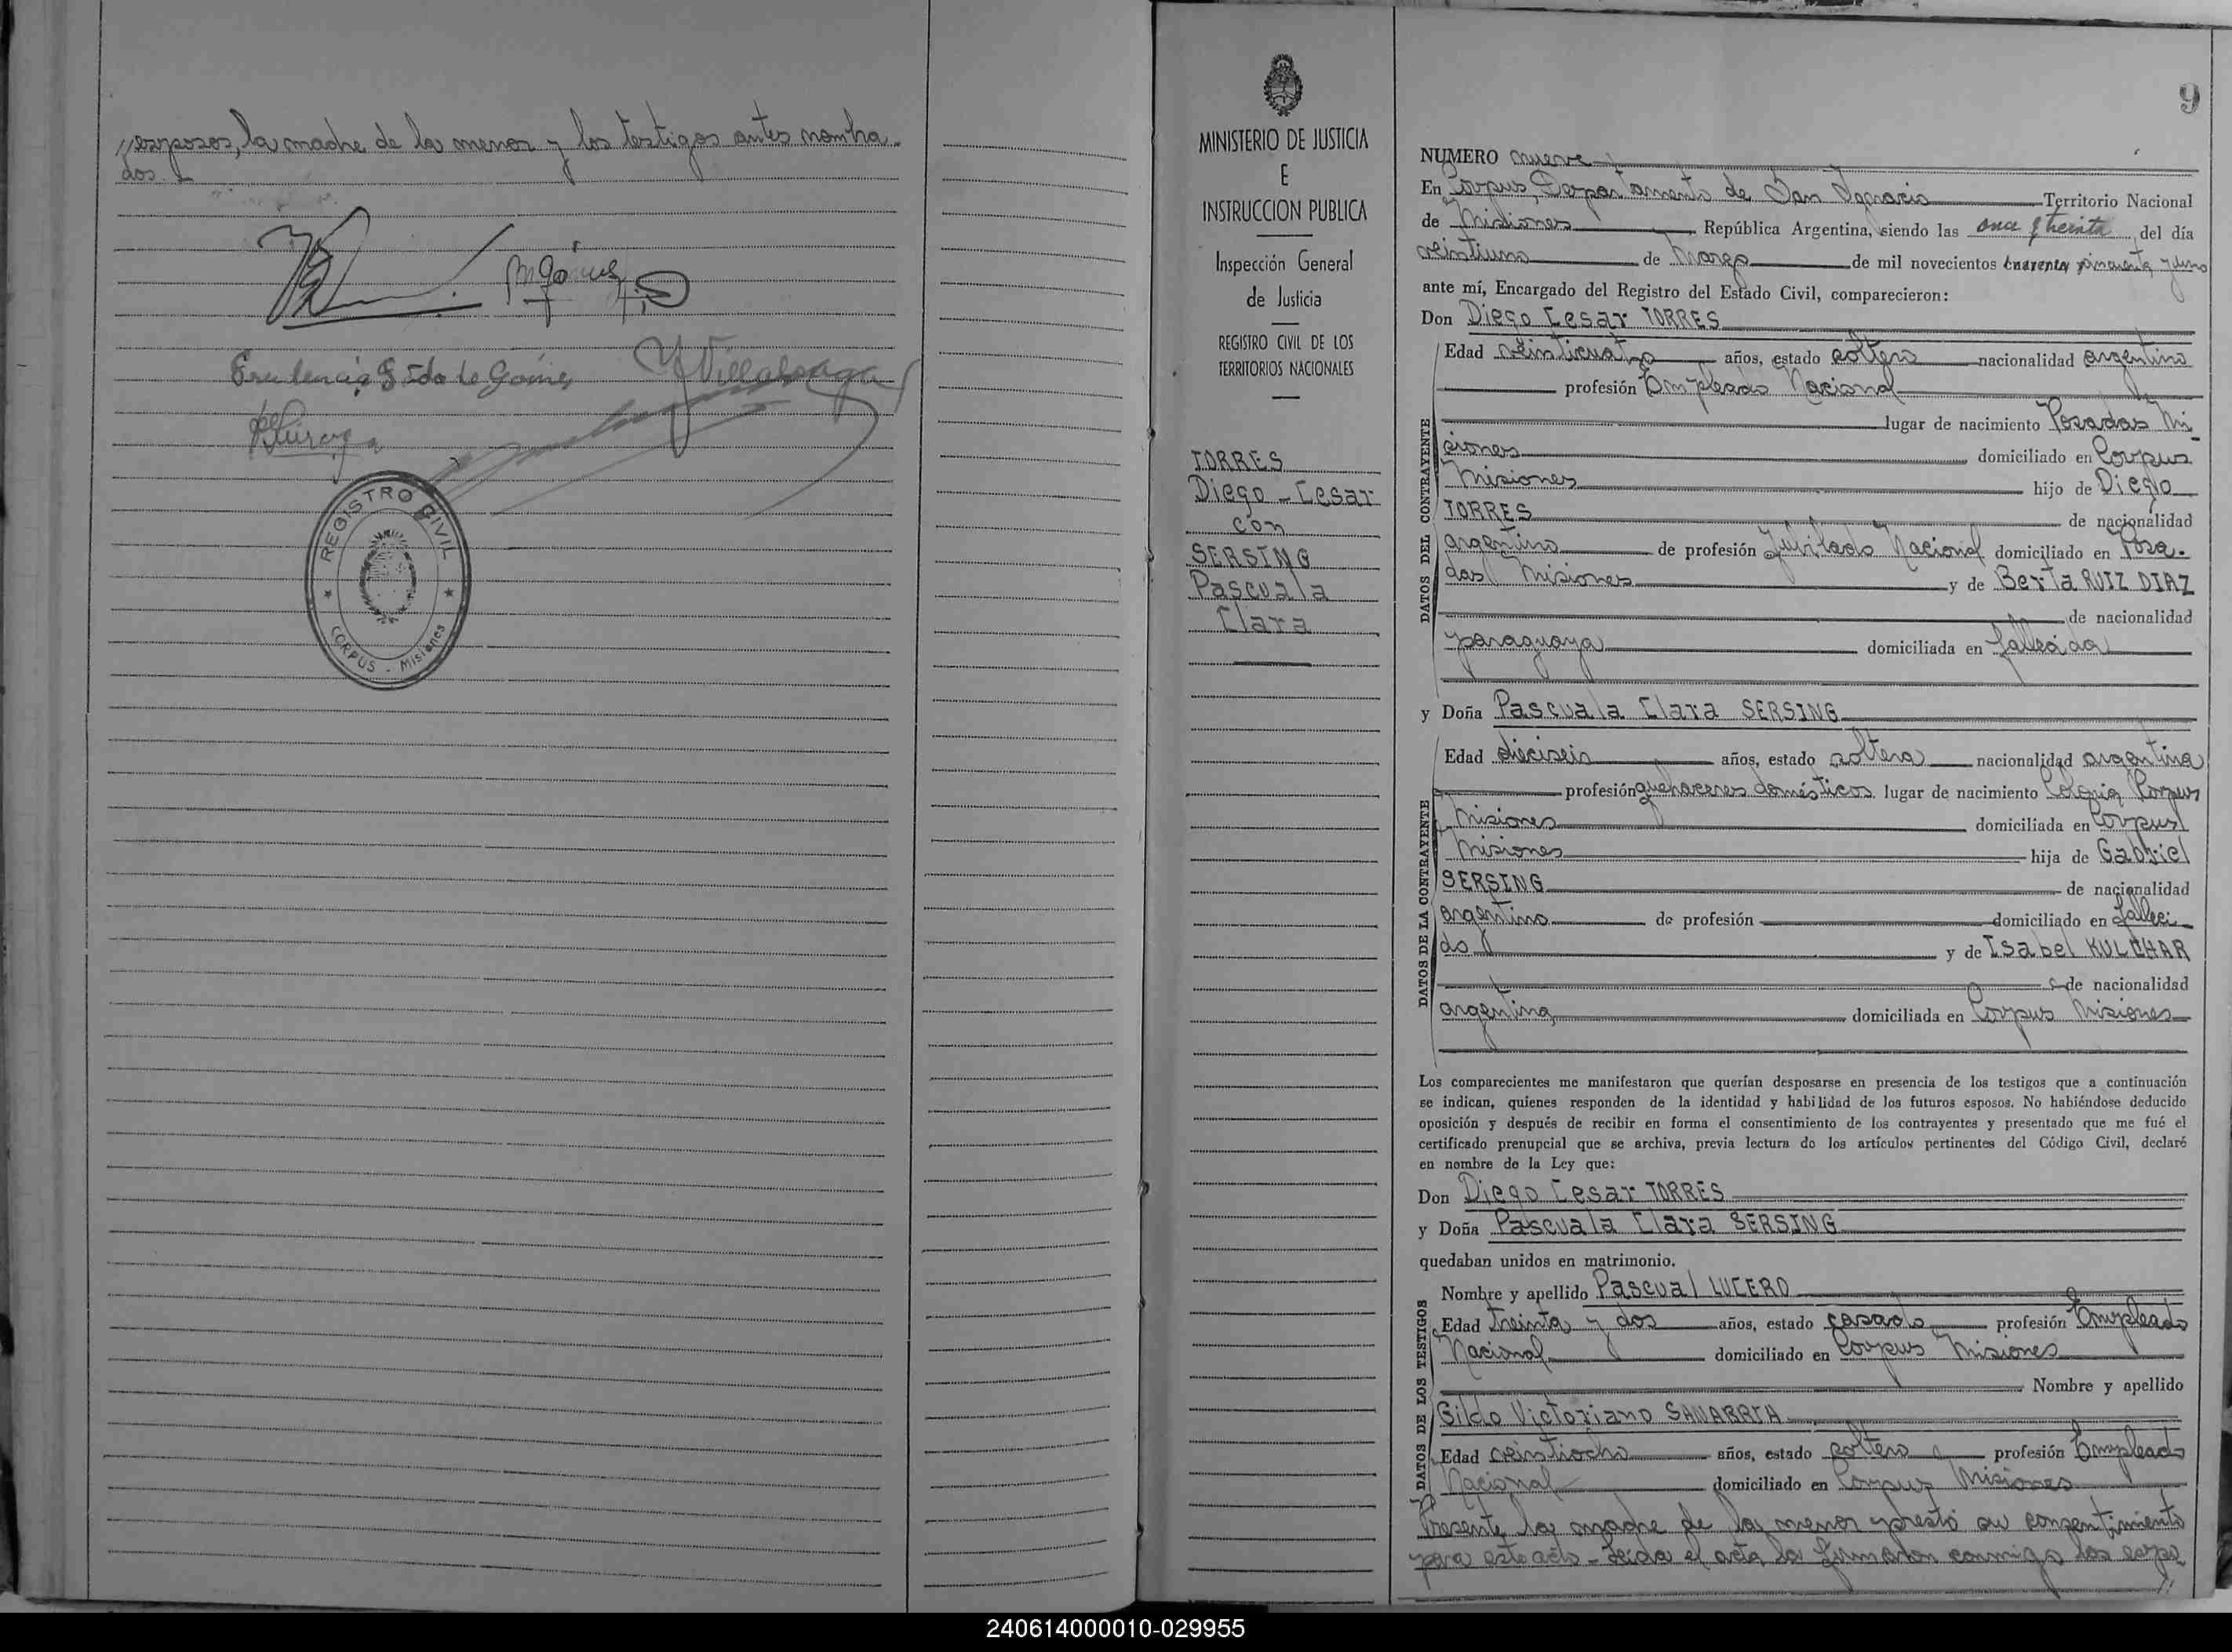 //esposos, la madre de la menor y los testigos antes nombra-
dos.
REGISTRO CIVIL
CORPUS - Misiones
9
MINISTERIO DE JUSTICIA
E
INSTRUCCION PUBLICA
Inspección General
de Justicia
REGISTRO CIVIL DE LOS
TERRITORIOS NACIONALES
TORRES
Diego - Cesar
con
SERSING
Pascuala
Clara
NUMERO nueve
En Corpus, Departamento de San Ignacio Territorio Nacional
de Misiones República Argentina, siendo las once y treinta del día
veintiuno de Marzo de mil novecientos cuarenta cincuenta y uno
ante mí, Encargado del Registro del Estado Civil, comparecieron:
Don Diego Cesar TORRES
DATOS DEL CONTRAYENTE
Edad veinticuatro años, estado soltero nacionalidad argentino
profesión Empleado Nacional
lugar de nacimiento Posadas Mi-
siones domiciliado en Corpus
Misiones hijo de Diego
TORRES de nacionalidad
argentino de profesión Jubilado Nacional domiciliado en Posa-
das Misiones y de Berta RUIZ DIAZ
de nacionalidad
paraguaya domiciliada en fallecida
y Doña Pascuala Clara SERSING
DATOS DE LA CONTRAYENTE
Edad dieciseis años, estado soltera nacionalidad argentina
profesión quehaceres domésticos lugar de nacimiento Colonia Corpus
Misiones domiciliada en Corpus
Misiones hija de Gabriel
SERSING de nacionalidad
argentino de profesión domiciliado en falleci-
do y de Isabel KULCHAR
de nacionalidad
argentina domiciliada en Corpus Misiones
Los comparecientes me manifestaron que querían desposarse en presencia de los testigos que a continuación
se indican, quienes responden de la identidad y habilidad de los futuros esposos. No habiéndose deducido
oposición y después de recibir en forma el consentimiento de los contrayentes y presentado que me fué el
certificado prenupcial que se archiva, previa lectura de los artículos pertinentes del Código Civil, declaré
en nombre de la Ley que:
Don Diego Cesar TORRES
y Doña Pascuala Clara SERSING
quedaban unidos en matrimonio.
DATOS DE LOS TESTIGOS
Nombre y apellido Pascual LUCERO
Edad treinta y dos años, estado casado profesión Empleado
Nacional domiciliado en Corpus Misiones
Nombre y apellido
Gildo Victoriano SANABRIA
Edad veintiocho años, estado soltero profesión Empleado
Nacional domiciliado en Corpus Misiones
Presente la madre de la menor prestó su consentimiento
para este acto - Leida el acta la firmaron conmigo los espo
//
240614000010-029955